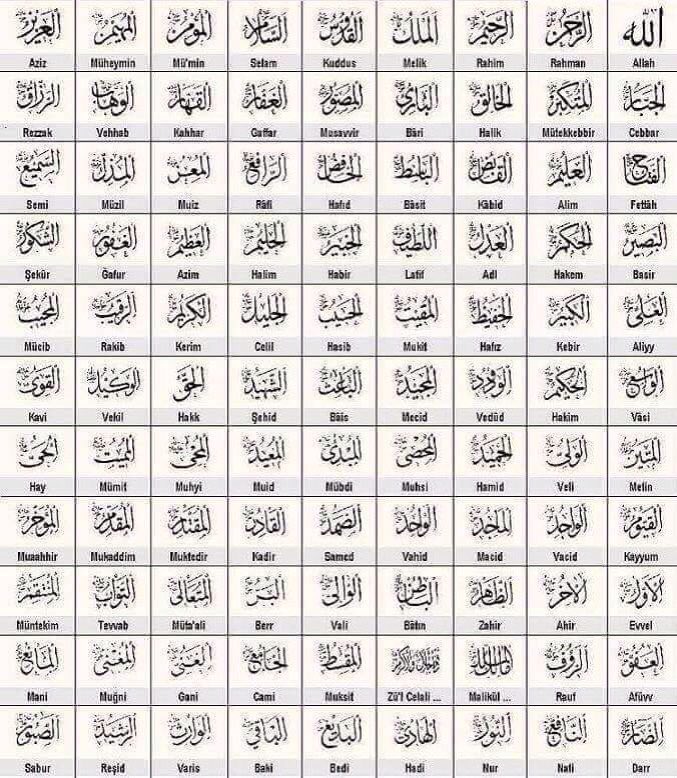 الله الرحمن الرحيم الملك القدوس السلام المؤمن المهيمن العزيز
Aziz Müheymin Mü'min Selam Kuddus Melik Rahim Rahman Allah
الجبار المتكبر الخالق البارئ المصور الغفار القهار الوهاب الرزاق
Rezzak Vehhab Kahhar Gaffar Musavvir Bâri Halik Mütekkebbir Cebbar
الفتاح العليم القابض الباسط الخافض الرافع المعز المذل السميع
Semi Müzil Muiz Râfi Hafıd Bâsit Kâbid Alim Fettâh
البصير الحكم العدل اللطيف الخبير الحليم العظيم الغفور الشكور
Şekûr Ğafur Azim Halim Habir Latif Adl Hakem Basir
العلي الكبير الحفيظ المقيت الحسيب الجليل الكريم الرقيب المجيب
Mücib Rakib Kerim Celil Hasib Mukit Hafız Kebir Aliyy
الواسع الحكيم الودود المجيد الباعث الشهيد الحق الوكيل القوي
Kavi Vekil Hakk Şehid Bâis Mecid Vedûd Hakim Vâsi
المتين الولي الحميد المحصي المبدئ المعيد المحيي المميت الحي
Hay Mümit Muhyi Muid Mübdi Muhsi Hamid Veli Metin
القيوم الواجد الماجد الواحد الصمد القادر المقتدر المقدم المؤخر
Muaahhir Mukaddim Muktedir Kadir Samed Vahid Macid Vacid Kayyum
الاول الاخر الظاهر الباطن الوالي البر المتعالي التواب المنتقم
Müntekim Tevvab Müta'ali Berr Vali Bâtın Zahir Ahir Evvel
العفو الرؤف مالك الملك ذو الجلال والاكرام المقسط الجامع الغني المغني المانع
Mani Muğni Gani Cami Muksit Zü'l Celali ... Malikül ... Rauf Afüvv
الضار النافع النور الهادي البديع الباقي الوارث الرشيد الصبور
Sabur Reşid Varis Baki Bedi Hadi Nur Nafi Darr